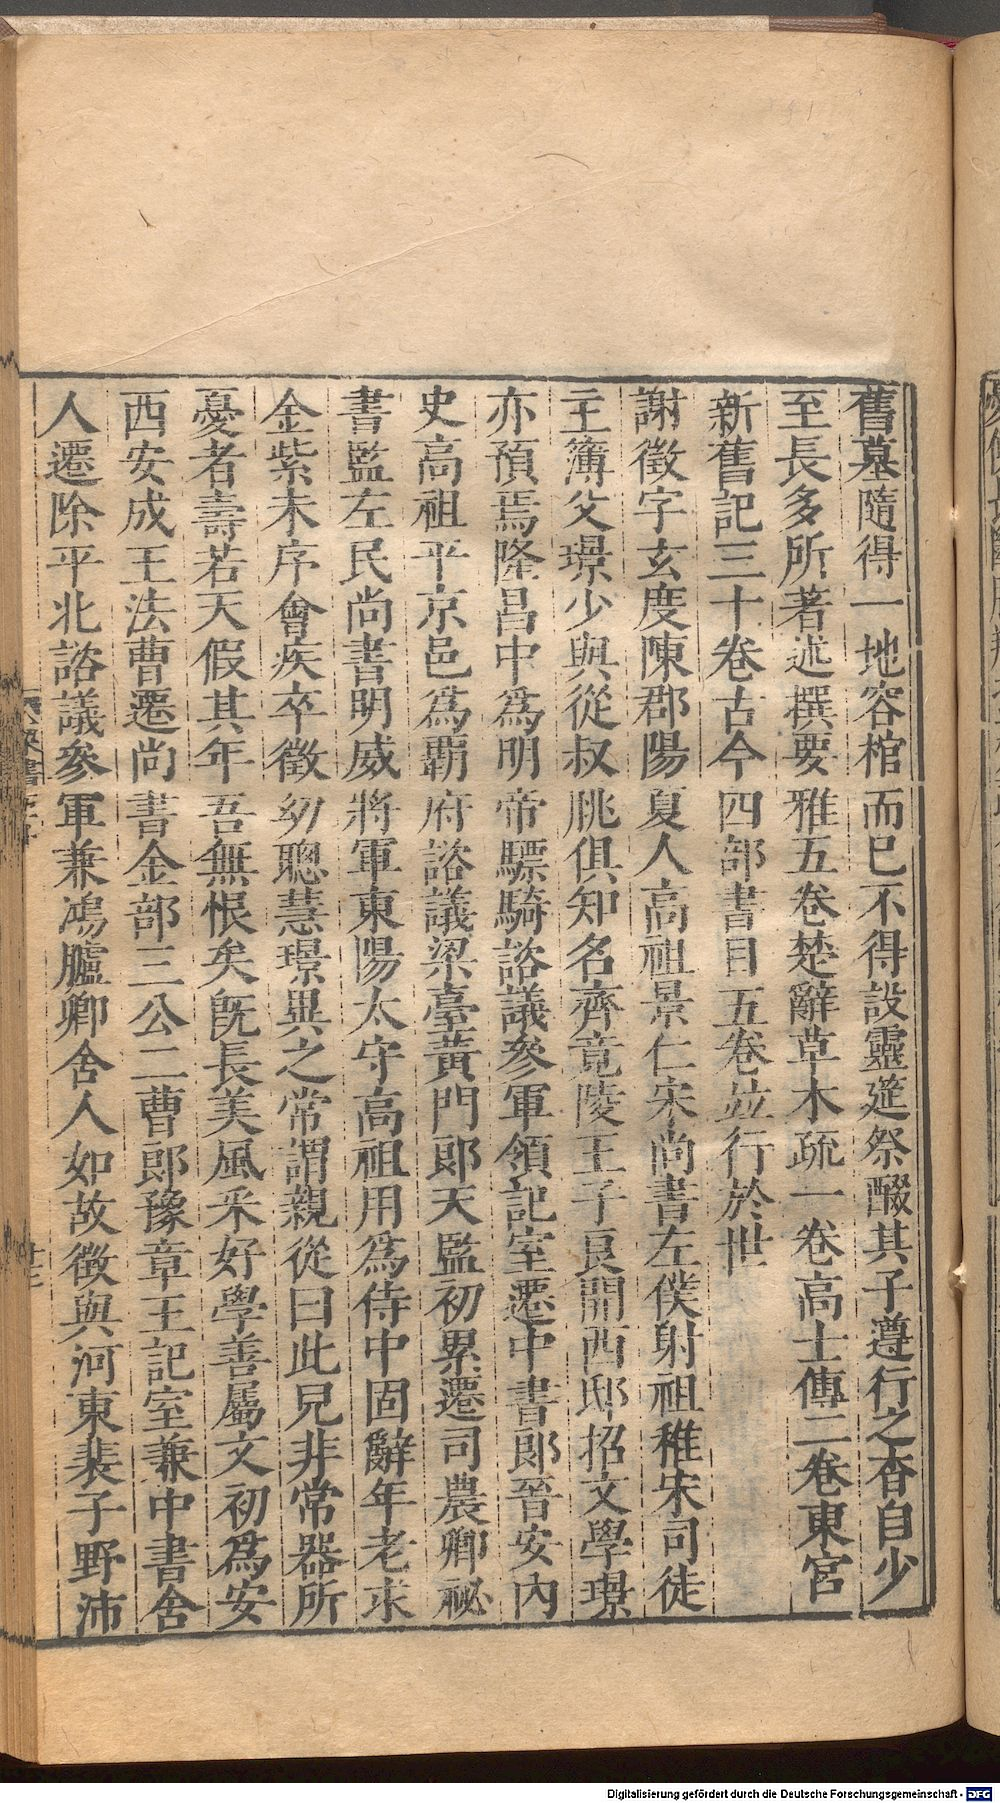 舊墓隨得一地容棺而已不得設靈筵祭醊其子遵行之杳自少
至長多所著述撰要雅五卷楚辭草木疏一卷高士傳二卷東宮
新舊記三十卷古今四部書目五卷竝行於世
謝徵字玄度陳郡陽夏人高祖景仁宋尚書左僕射祖稚宋司徒
主簿父璟少與從叔朓俱知名齊竟陵王子良開西邸招文學璟
亦預焉隆昌中為明帝驃騎諮議參軍領記室遷中書郎晉安內
史高祖平京邑為霸府諮議梁臺黃門郎天監初累遷司農卿祕
書監左民尚書明威將軍東陽太守高祖用為侍中固辭年老求
金紫未序會疾卒徵幼聰慧璟異之常謂親從曰此兒非常器所
憂者壽若天假其年吾無恨矣旣長美風采好學善屬文初為安
西安成王法曹遷尚書金部三公二曹郎豫章王記室兼中書舍
人遷除平北諮議參軍兼鴻臚卿舍人如故徵與河東裴子野沛
Digitalisierung gefördert durch die Deutsche Forschungsgemeinschaft - DFG